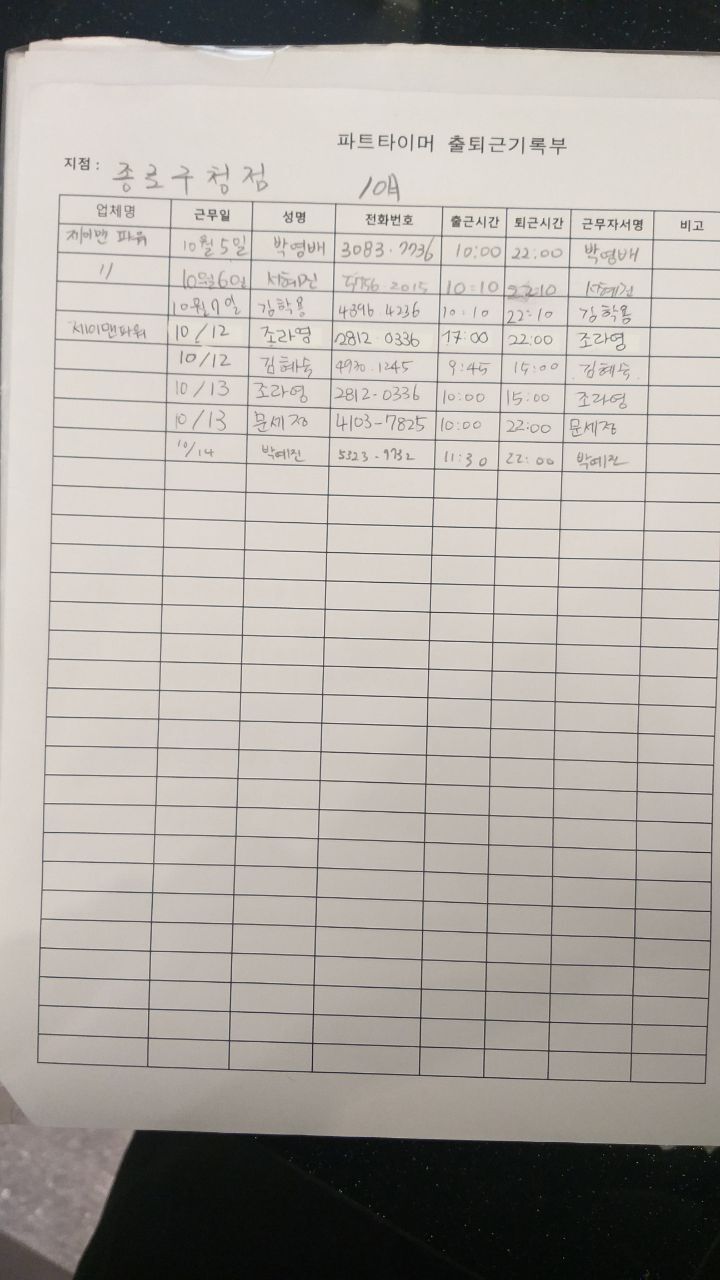 파트타이머 출퇴근기록부
지점 : 종로구청점 10月
업체명 근무일 성명 전화번호 출근시간 퇴근시간 근무자서명 비고
제이맨 파워 10월 5일 박영배 3083.7736 10:00 22:00 박영배
〃 10월 6일 서혜진 2015 10:10 22:10 서혜진
10월 7일 김학용 4396.4236 10:10 22:10 김학용
제이맨파워 10/12 조라영 2812.0336 17:00 22:00 조라영
10/12 김혜숙 4930.1245 9:45 15:00 김혜숙
10/13 조라영 2812-0336 10:00 15:00 조라영
10/13 문세정 4103-7825 10:00 22:00 문세정
10/14 박예진 5323-9732 11:30 22:00 박예진